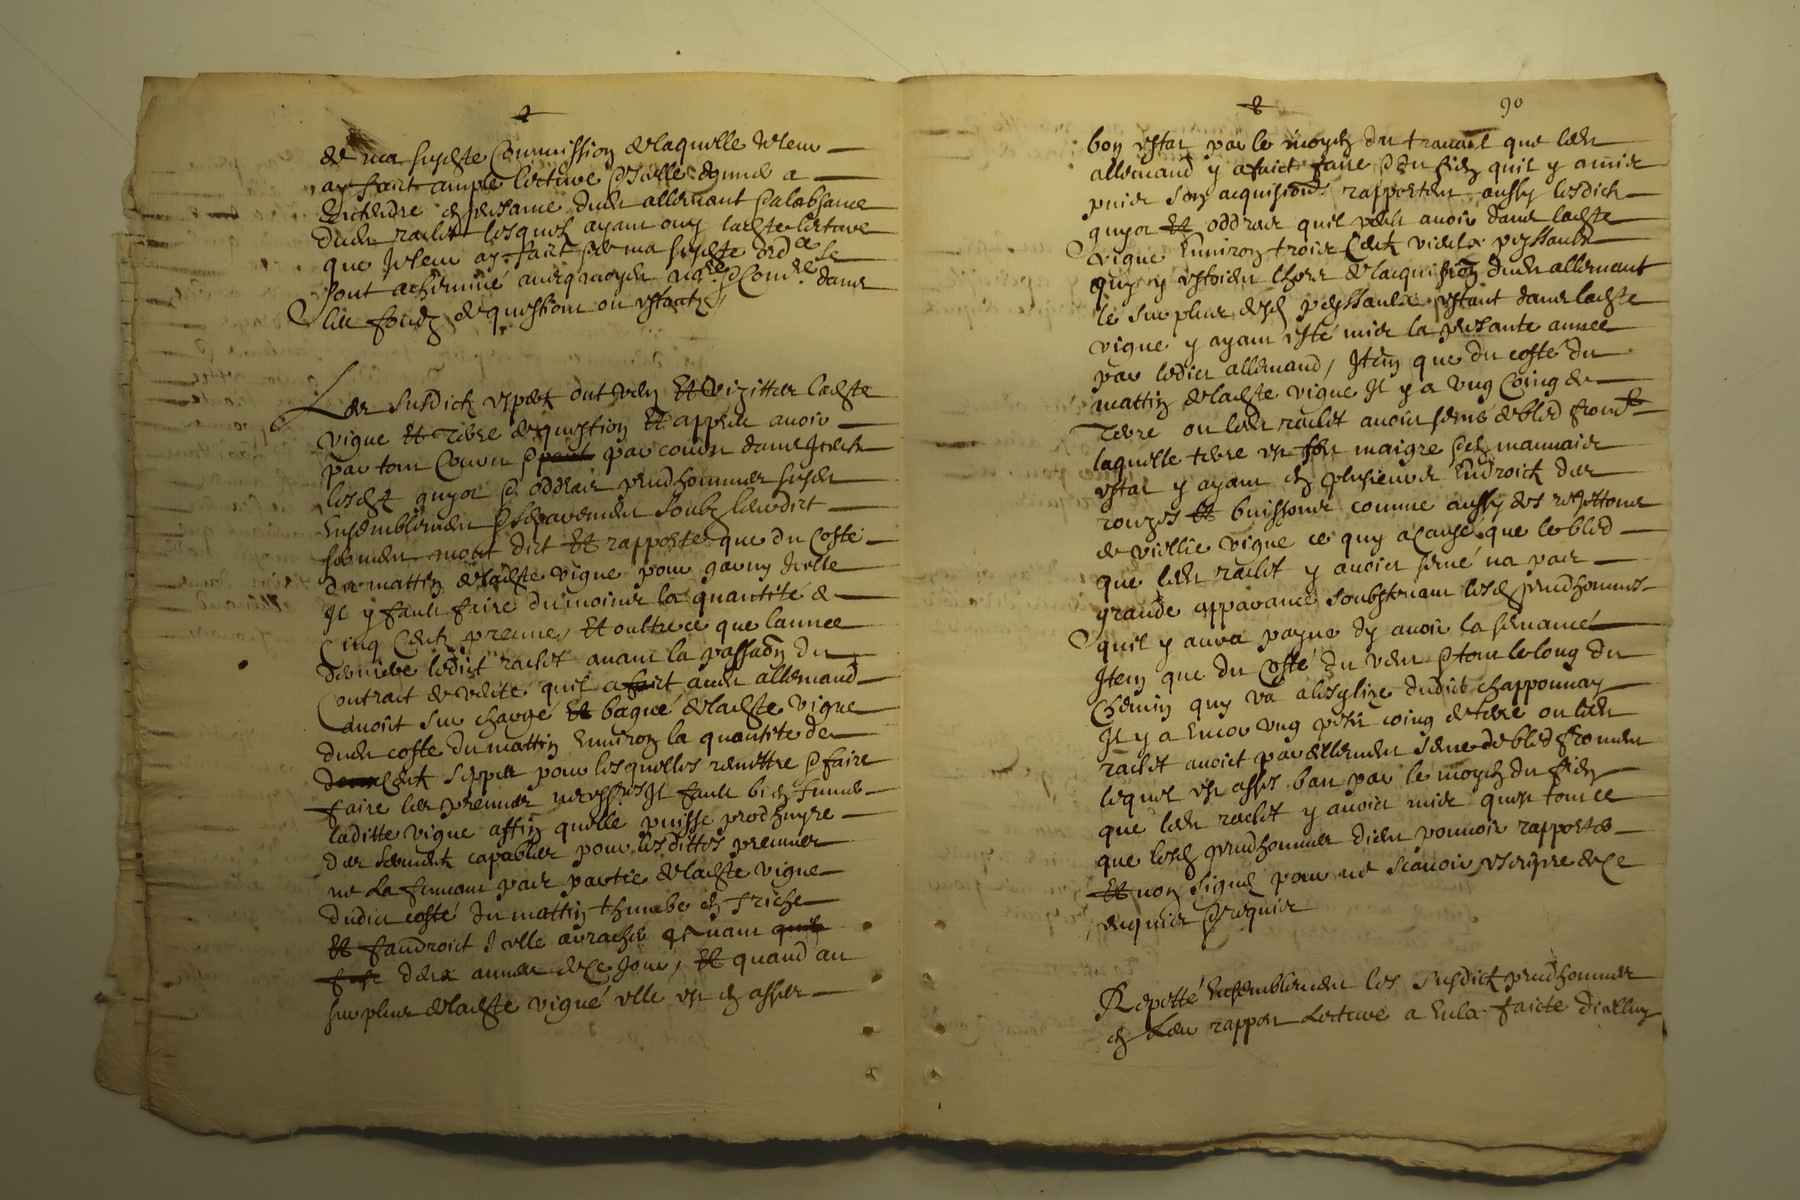 de ma susdite Commission de laquelle Je leur
ay fait ample lecture
Entendre en presance dudit allemant &
dudit raclet lesquels ayant ouy ladite lecture
que Je leur ay fait de ma susdite
sont acheminé avecq moyed dans
les fondz de question ou estantz

Les susdictz ont veu Et vizitter ladite
vigne Et Terre de question Et appres avoir
par tout Couru & par couru dans Icelle
lesdits guyot & oddrais prudhommes susdits
Ensemblement & separement soubz leurdict
serment mont dict Et rapporté que du Costé
du mattin de ladite vigne pour garny Icelle
Il y fault faire du moins la quantité de
Cinq Centz preune, Et oultre ce que lannee
derniere ledict raclet avant la passation du
Contract de vente quil a faict audit allemand
avoit sur chargé Et bagué de ladite vigne
dudit coste du mattin Environ la quantite de
Centz seppes pour lesquelles remettre & faire
faire les preunes Il fault bien fumer
laditte vigne affin quelle puisse prodhuyre
des serments capables pour lesdittes preunes
ne La fumant pais partie de ladite vigne
dudict costé du mattin thumbe en friche
Et faudroict Icelle arracher avant
deux annees de Ce Jour, Et quand au
surplus de ladite vigne elle est en asses

90
bon estat par le moyen du travail que ledit
allemand y a faict faire & du fien quil y a mis
puis son acquisition rapportent aussy lesdicts
guyot Et oddrais quil peult avoir dans ladite
vigne Environ trois Centz vieulx peyssaulx
quy y estoient lhors de lacquisition dudit allemant
le surplus desdits peyssaulx estant dans ladite
vigne y ayant esté mis la presante annee
par ledict allemand, Item que du costé du
mattin de ladite vigne Il y a ung Coing de
Terre ou ledit raclet avoit semé de bled froment
laquelle terre est fort maigre & en mauvais
estat y ayant en plusieurs Endroictz des
ronzes Et buissons comme aussy des rejettons
de viellie vigne ce quy a causé que le bled
que ledit raclet y avoit semé na pas
grande apparance soubstenant lesdits prudhommes
quil y aura payne dy avoir la semance
Item que du Costé du vent & tout le long du
Chemin quy va a lesglize dudict chapponnay
Il y a Encor ung petit coing de terre ou ledit
raclet avoit pareillement semé de bled froment
lequel est asses bau par le moyen du fien
que ledit raclet y avoit mis quest tout ce
que lesdits prudhommes dient pouvoir rapporter
Et non signé pour ne scavoir escripre de Ce
enquis & requis

Repetté Ensemblement les susdictz prudhommes
en Leur rapport Lecture a Eulx faicte dicelluy